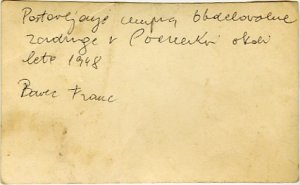 Postavljanje umpra Obdelovalne
zadruge v Cerenski okoli
leta 1948
Pavec Franc